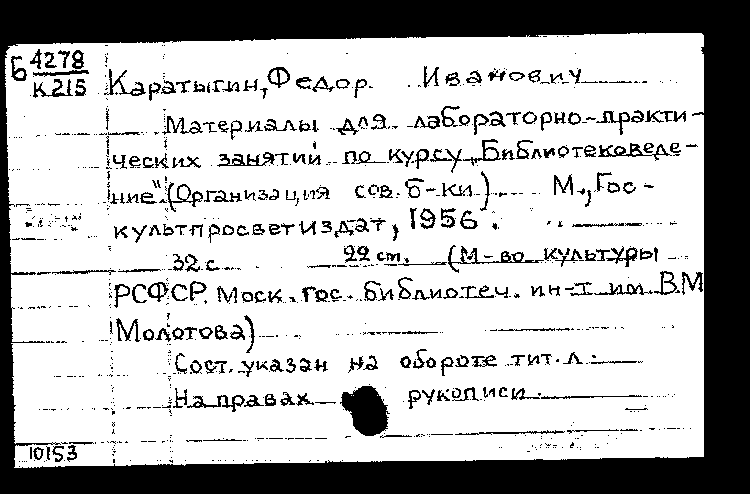 Б 4278
К 215
Каратыгин, Федор Иванович
Материалы для лабораторно-практи-
ческих занятий по курсу „Библиотековеде-
ние". (Организация сов. б-ки). М., Гос-
культпросветиздат, 1956.
32 с. 22 ст. (М-во культуры
РСФСР. Моск. гос. библиотеч. ин-т им В.М
Молотова)
Сост. указан на обороте тит. л.
На правах рукописи.
10153